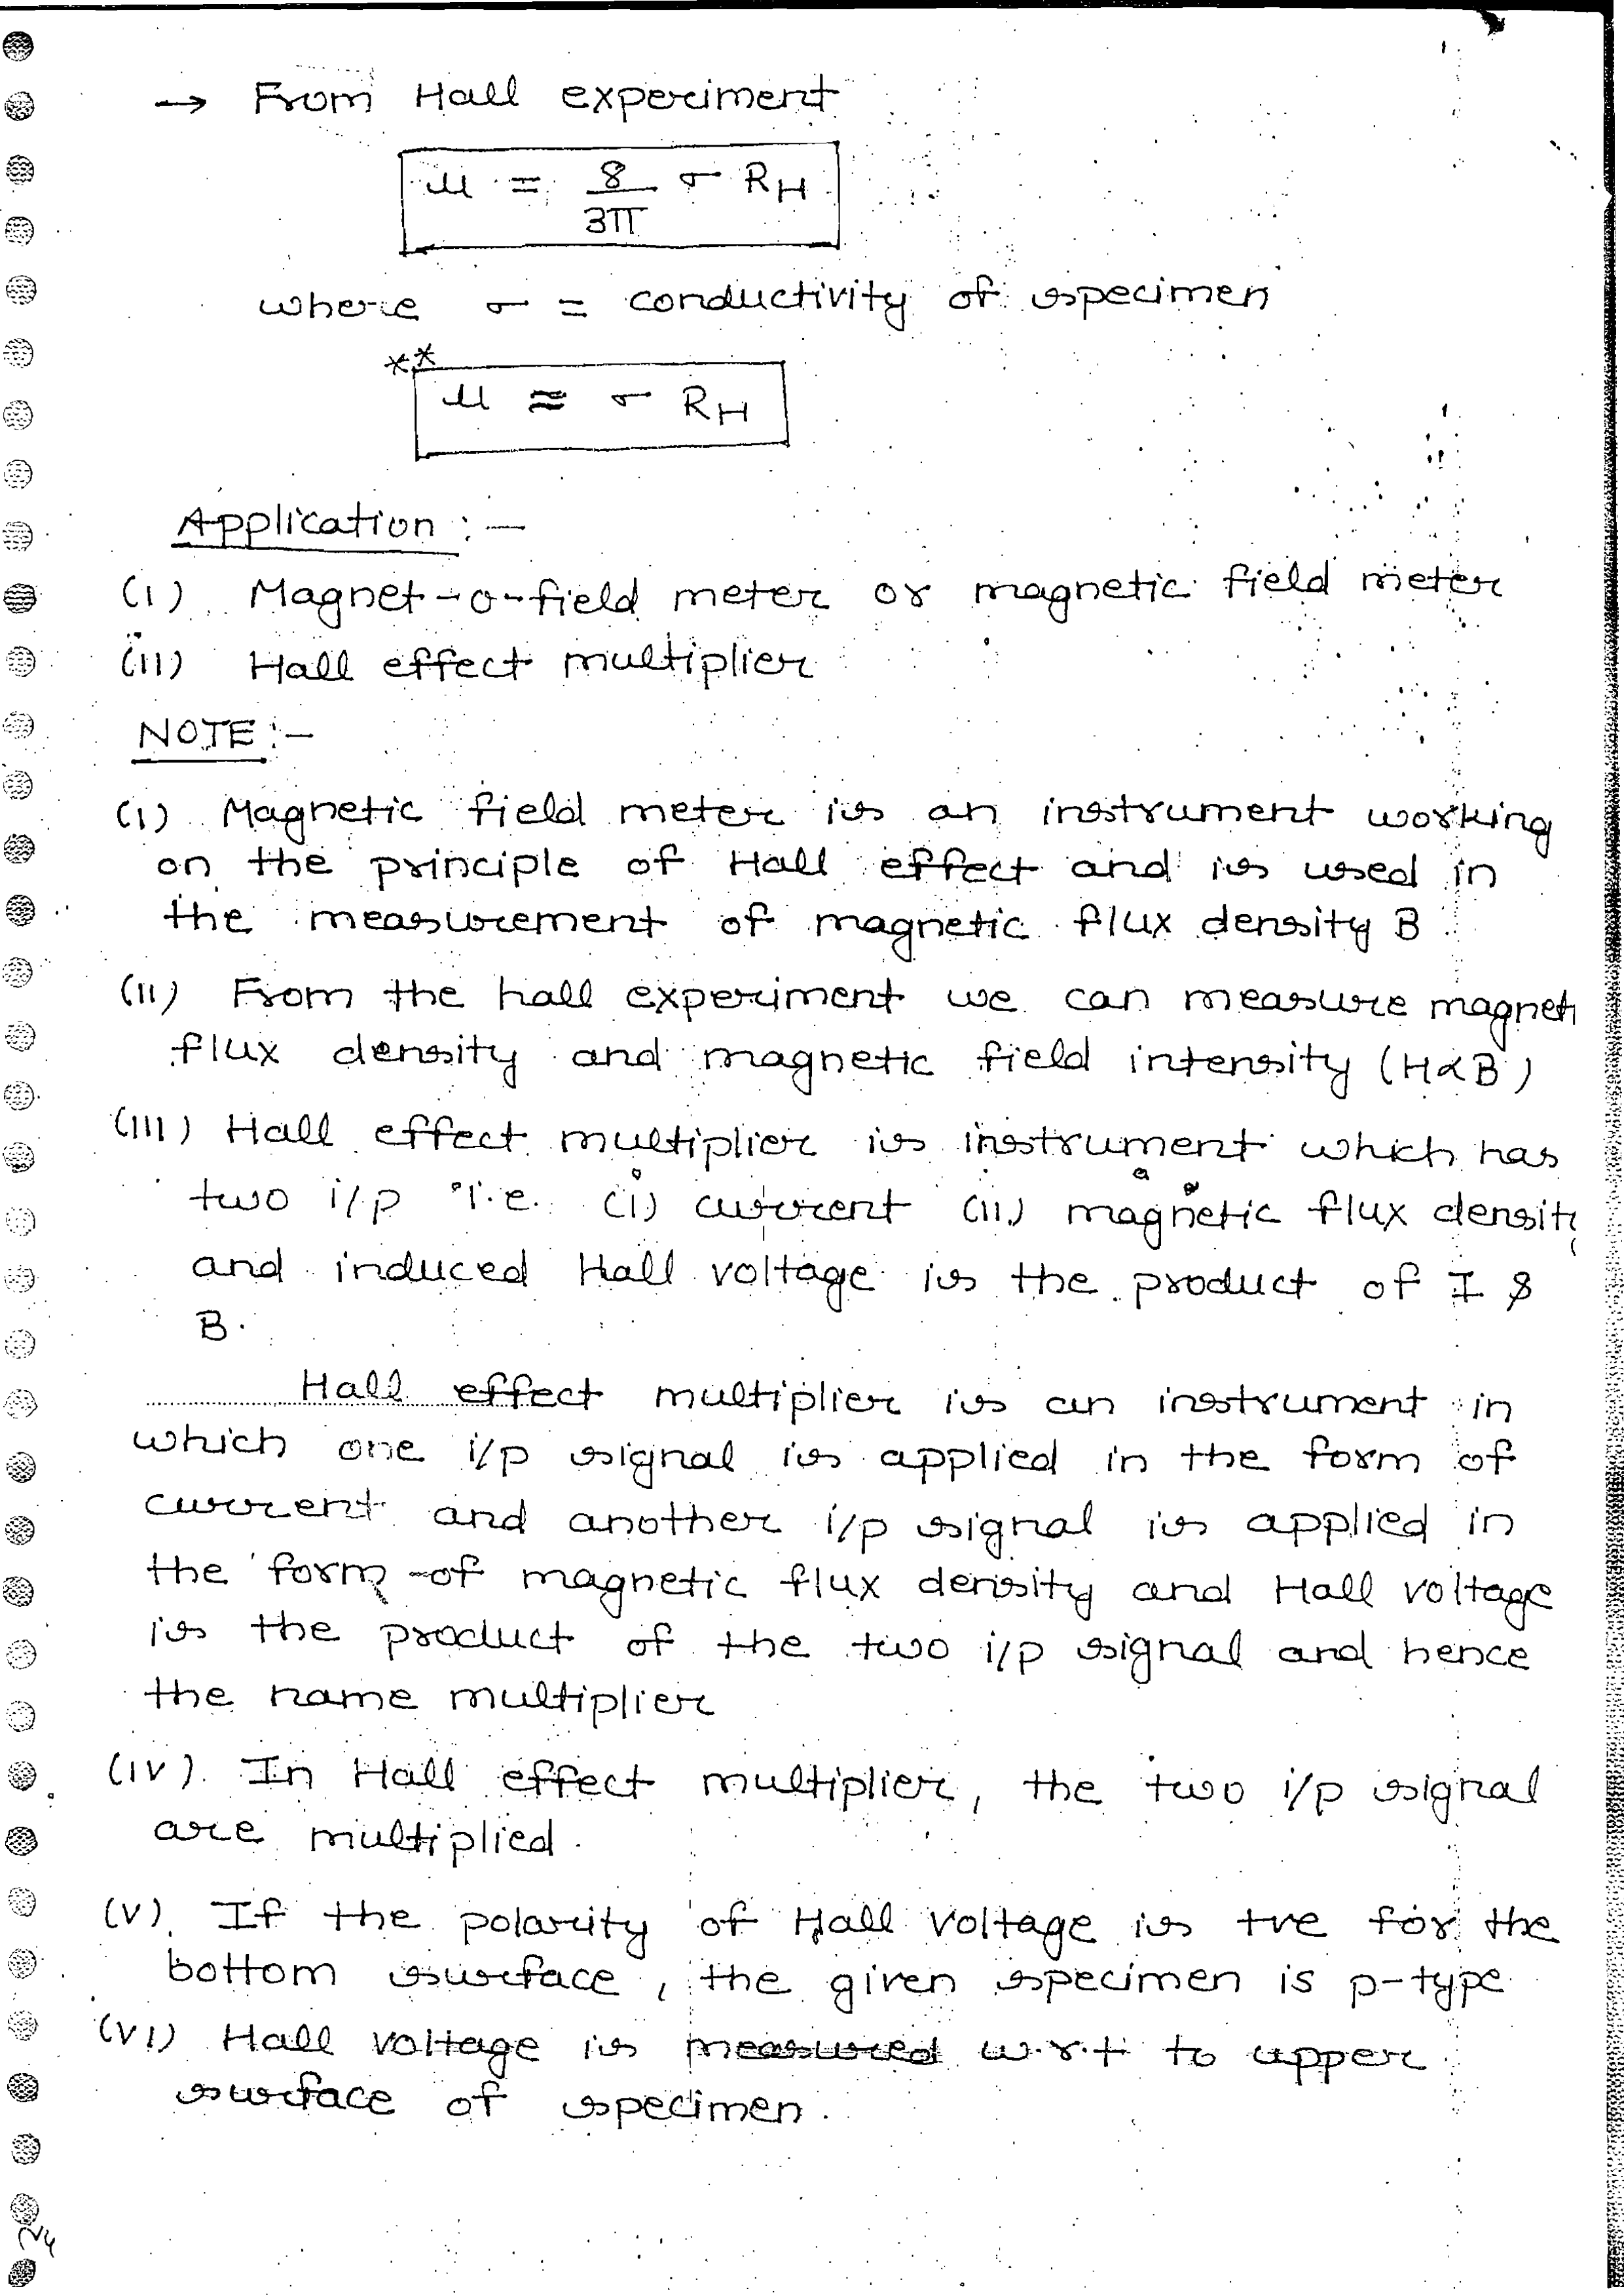 → From Hall experiment
μ = 8/3π σ R_H
where σ = conductivity of specimen
**
μ ≈ σ R_H
Application :-
(i) Magnet-o-field meter or magnetic field meter
(ii) Hall effect multiplier
NOTE :-
(i) Magnetic field meter is an instrument working
on the principle of Hall effect and is used in
the measurement of magnetic flux density B
(ii) From the hall experiment we can measure magneti
flux density and magnetic field intensity (H∝B)
(iii) Hall effect multiplier is instrument which has
two i/p i.e. (i) current (ii) magnetic flux densit
and induced Hall voltage is the product of I &
B.
Hall effect multiplier is an instrument in
which one i/p signal is applied in the form of
current and another i/p signal is applied in
the form of magnetic flux density and Hall voltage
is the product of the two i/p signal and hence
the name multiplier
(iv). In Hall effect multiplier, the two i/p signal
are multiplied.
(v). If the polarity of Hall voltage is +ve for the
bottom surface, the given specimen is p-type
(vi) Hall voltage is measured w.r.t to upper
surface of specimen.
24